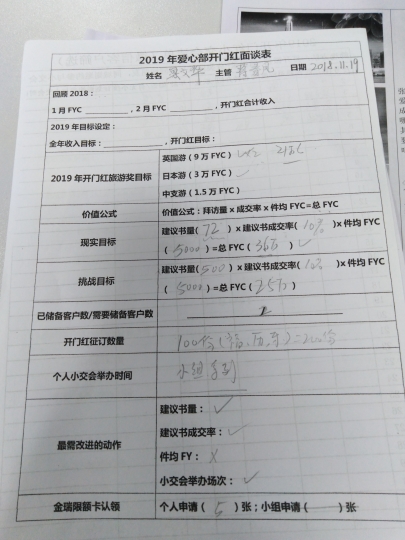 2019 年爱心部开门红面谈表
姓名 主管 日期 2018.11.19
回顾 2018：
1 月 FYC ，2 月 FYC ，开门红合计收入
2019 年目标设定：
全年收入目标： ，开门红目标：
2019 年开门红旅游奖目标
英国游（9 万 FYC）
日本游（3 万 FYC）
中支游（1.5 万 FYC）
价值公式 价值公式：拜访量 x 成交率 x 件均 FYC=总 FYC
现实目标
建议书量( 72 ）x 建议书成交率( 10% )x 件均 FYC
( 5000 ）=总 FYC（ ）✓
挑战目标
建议书量( 500 ）x 建议书成交率( 10% )x 件均 FYC
( 5000 ）=总 FYC（ 25万 ）
已储备客户数/需要储备客户数
开门红征订数量 100份
个人小交会举办时间 小组
最需改进的动作
建议书量：✓
建议书成交率：✓
件均 FY：X
小交会举办场次：✓
金瑞限额卡认领 个人申请（ 5 ）张；小组申请（ ）张